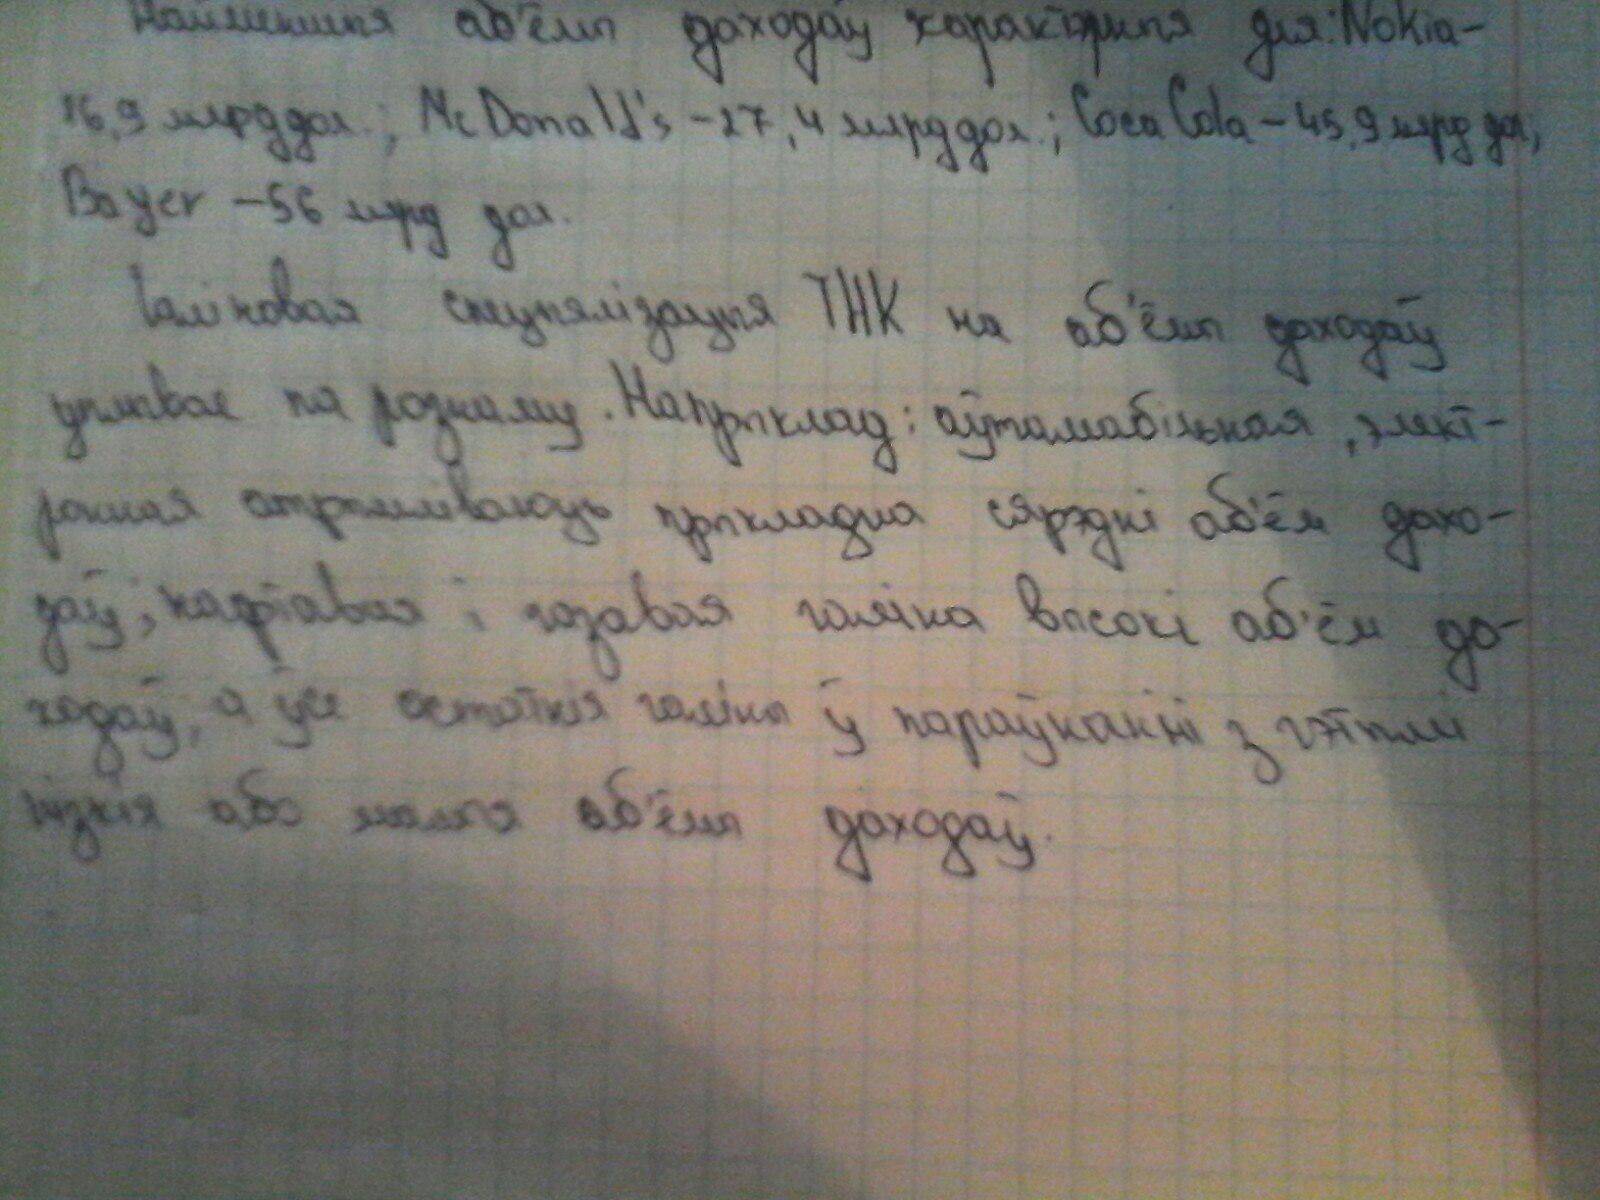 Найменшыя аб'ёмы даходаў характэрныя для: Nokia-
16,9 млрд дол.; McDonald's -27,4 млрд дол.; Coca Cola - 45,9 млрд дол.;
Bayer -56 млрд дол.
Галіновая спецыялізацыя ТНК на аб'ёмы даходаў
уплывае па рознаму. Напрыклад: аўтамабільная, элект-
ронная атрымліваюць прыкладна сярэдні аб'ём дахо-
даў; нафтавая і газавая галіна высокі аб'ём да-
ходаў, а ўсе астатнія галіны ў параўнанні з гэтымі
нізкія або малыя аб'ёмы даходаў.